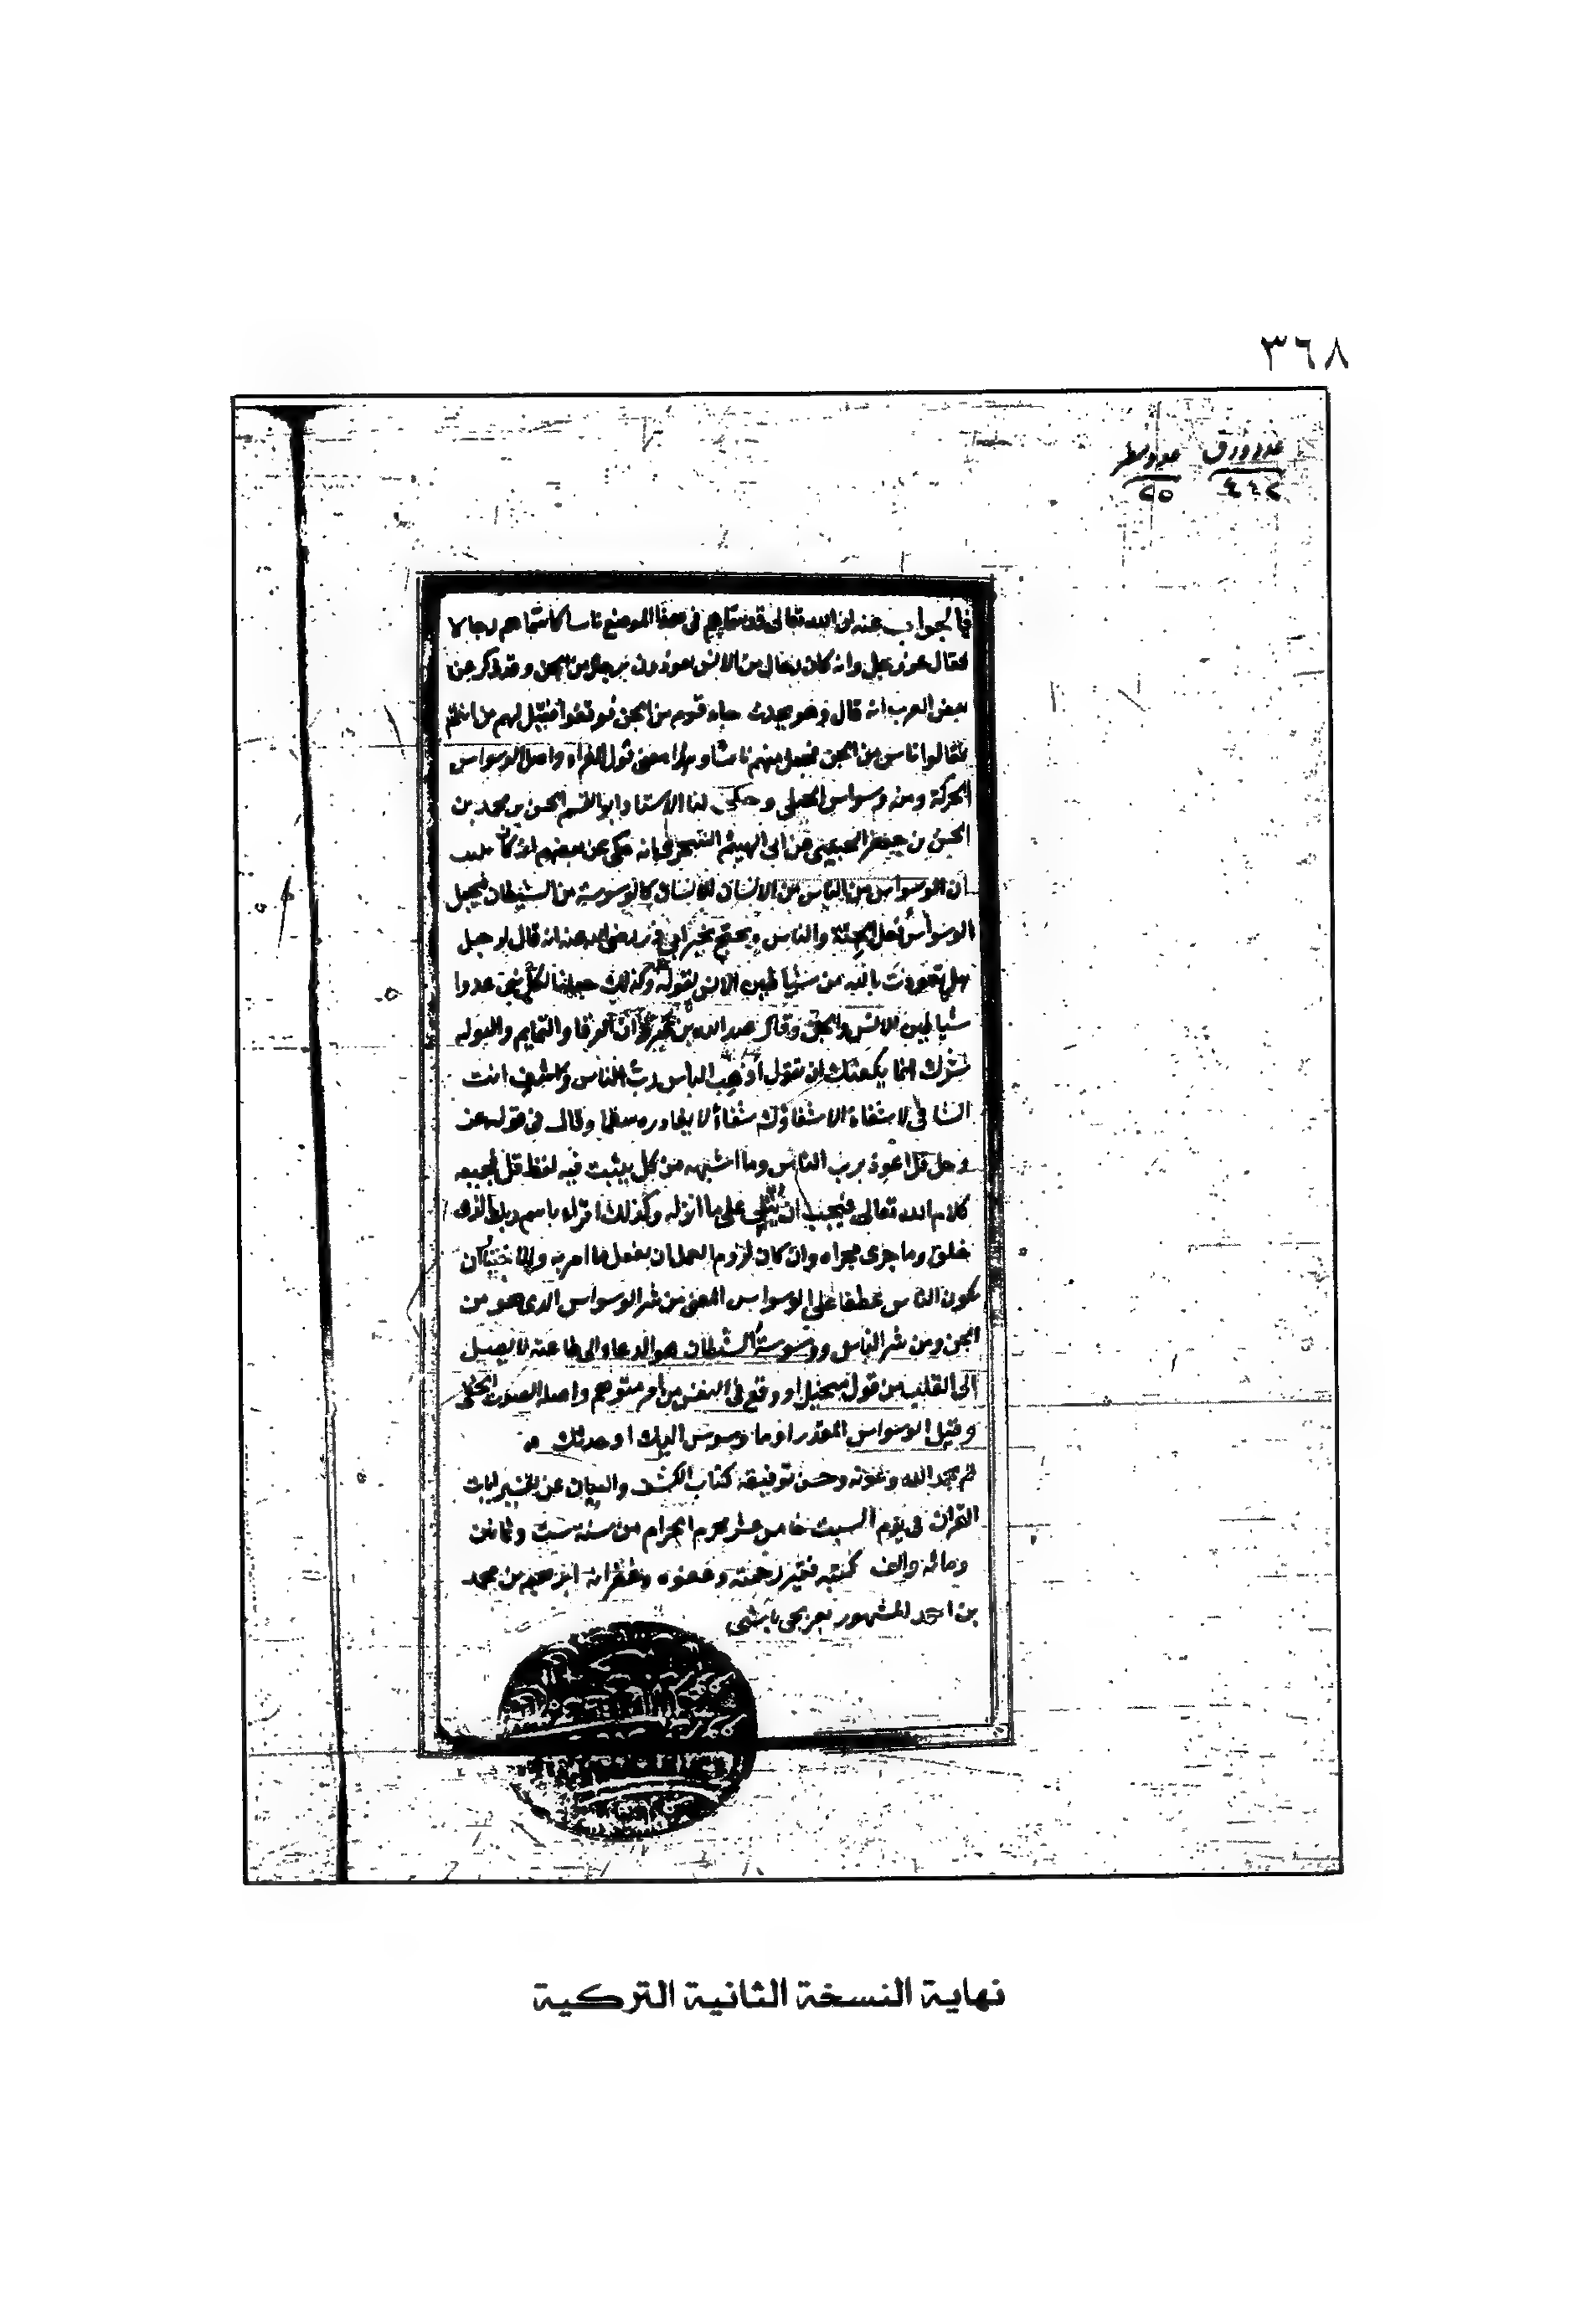 ٣٦٨
عدد ورق عدد سطر
٤٤٢ ٢٥
فالجواب عنه ان الله تعالى قد سماهم فى هذا الموضع ناسا كما سماهم رجالا
فقال عز وجل وانه كان رجال من الانس يعوذون برجال من الجن وقد ذكر عن
بعض العرب انه قال وهو يحدث جاء قوم من الجن فوقفوا فقيل لهم من انتم
فقالوا ناس من الجن فجعل منهم ناسا وهذا معنى قول الفراء واصل الوسواس
الحركة ومنه وسواس الحلى وحكى لنا الاستاد ابو القسم الحسن بن محمد بن
الحسن بن جعفر عن ابى الهيثم السجزى انه حكى عن بعضهم انه كان
ان الوسواس من الناس من الانسان للانسان كالوسوسة من الشيطان فجعل
الوسواس فعل الجنة والناس ويحتج بخبر ابى ذر رضى الله عنه انه قال لرجل
هل تعوذت بالله من شياطين الانس لقوله وكذلك جعلنا لكل نبى عدوا
شياطين الانس والجن وقال عبد الله بن ان الرقا والتمايم والتوله
شرك انما يكفيك ان تقول اذهب الباس رب الناس واشف انت
الشافى لا شفاء الا شفاؤك شفاء لا يغادر سقما وقال فى قوله عز
وجل قل اعوذ برب الناس وما اشبهه من كل يثبت فيه لفظ قل لجميعه
كلام الله تعالى فيجب ان يتلى على ما انزله وكذلك اقراء باسم ربك الذى
خلق وما جرى مجراه وان كان لزوم العمل ان يفعل ما امر به ان
يكون الناس عطفا على الوسواس المعنى من شر الوسواس الذى هو من
الجن ومن شر الناس ووسوسة الشيطان هو الدعاء الى طاعته لا يصل
الى القلب من قول متخيل او وقع فى النفس من امر متوهم واصله الصوت الخفى
وقيل الوسواس المقدر اذ ما وسوس اليك او حدثك
تم بحمد الله وعونه وحسن توفيقه كتاب الكشف والبيان عن تفسير ايات
القران فى يوم السبت خامس عشر محرم الحرام من سنة ست وثمانين
ومائه والف كتبه فقير رحمته وعفوه وغفرانه ابرهيم بن محمد
بن احمد المشهور بعربجى باشى
نهاية النسخة الثانية التركية